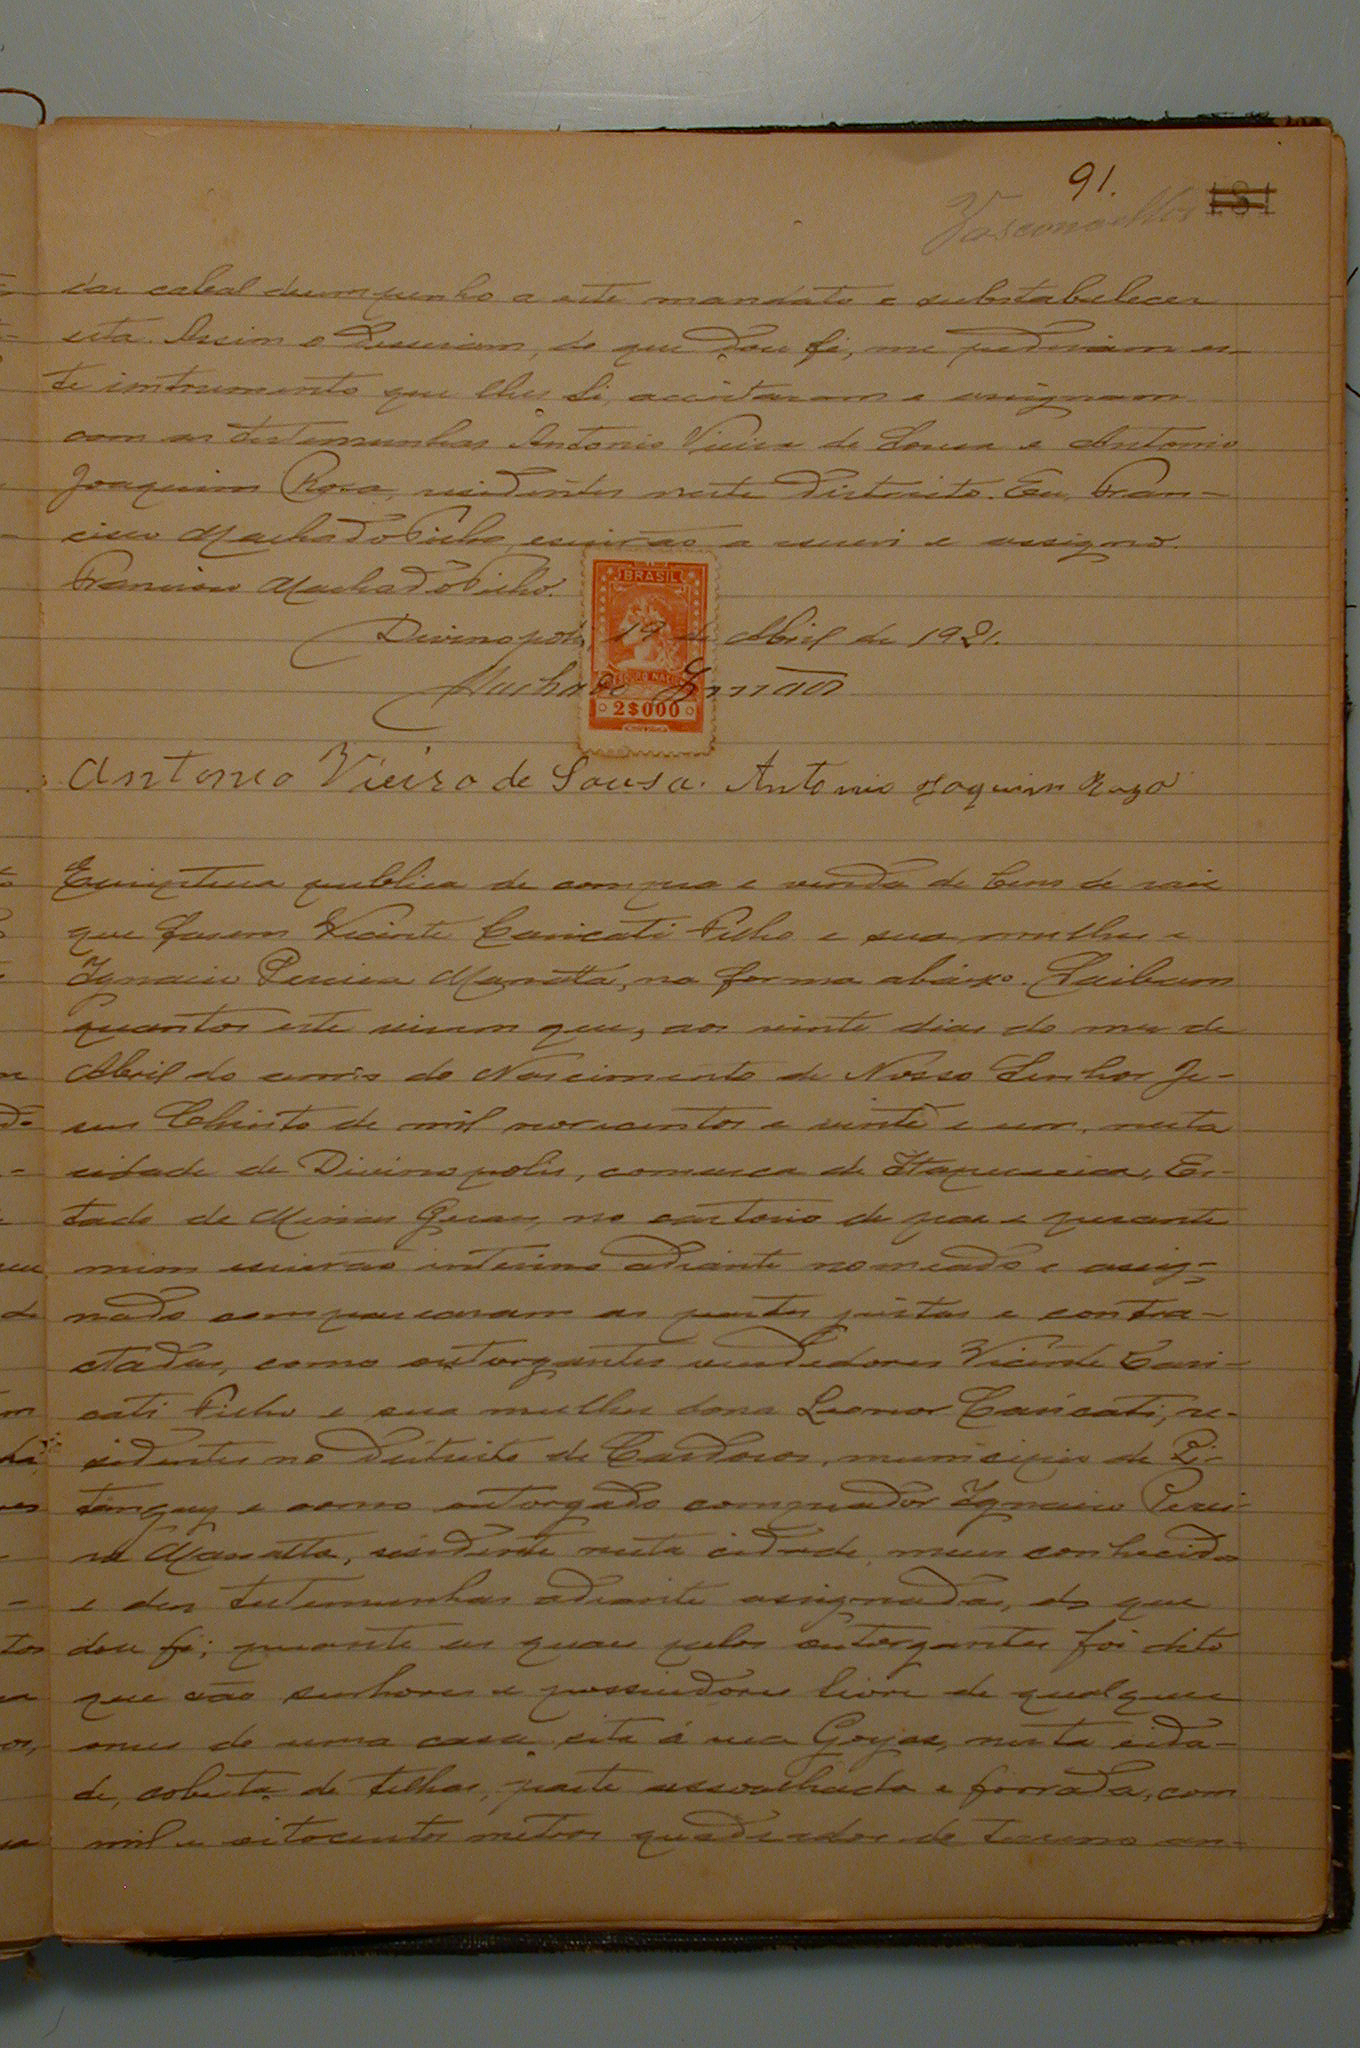 91.
Vasconcellos 181
dar cabal desempenho a este mandato e substabelecer
esta. Assim o disseram, do que dou fé, me pediram es-
te instrumento que lhes li, acceitaram e assignam
com as testemunhas Antonio Vieira de Sousa e Antonio
Joaquim Rosa, residentes neste districto. Eu, Fran-
cisco Machado Filho, escrivão a escrevi e assigno.
Francisco Machado Filho.
BRASIL
Divinopolis, 19 de Abril de 1921.
Machado Irmãos
THESOURO NACIONAL
2$000
Antonio Vieira de Sousa. Antonio Joaquim Roza
Escriptura publica de compra e venda de bens de raiz
que fazem Vicente Caricati Filho e sua mulher e
Ignacio Pereira Manatta, na forma abaixo. Saibam
quantos este virem que, aos vinte dias do mez de
Abril do anno do Nascimento de Nosso Senhor Je-
sus Christo de mil novecentos e vinte e um, nesta
cidade de Divinopolis, comarca de Itapecerica, Es-
tado de Minas Geraes, no cartorio de paz e perante
mim escrivão interino adiante nomeado e assig-
nado compareceram as partes justas e contra-
ctadas, como outorgantes vendedores Vicente Cari-
cati Filho e sua mulher dona Leonor Caricati, re-
sidentes no districto de Cardosos, municipio de Pi-
tanguy e como outorgado comprador Ignacio Perei-
ra Manatta, residente nesta cidade, meus conhecidos
e das testemunhas adiante assignadas, do que
dou fé; perante as quaes pelos outorgantes foi dito
que são senhores e possuidores livre de qualquer
onus de uma casa sita á rua Goyaz, nesta cida-
de, coberta de telhas, parte assoalhada e forrada, com
mil e oitocentos metros quadrados de terreno an-